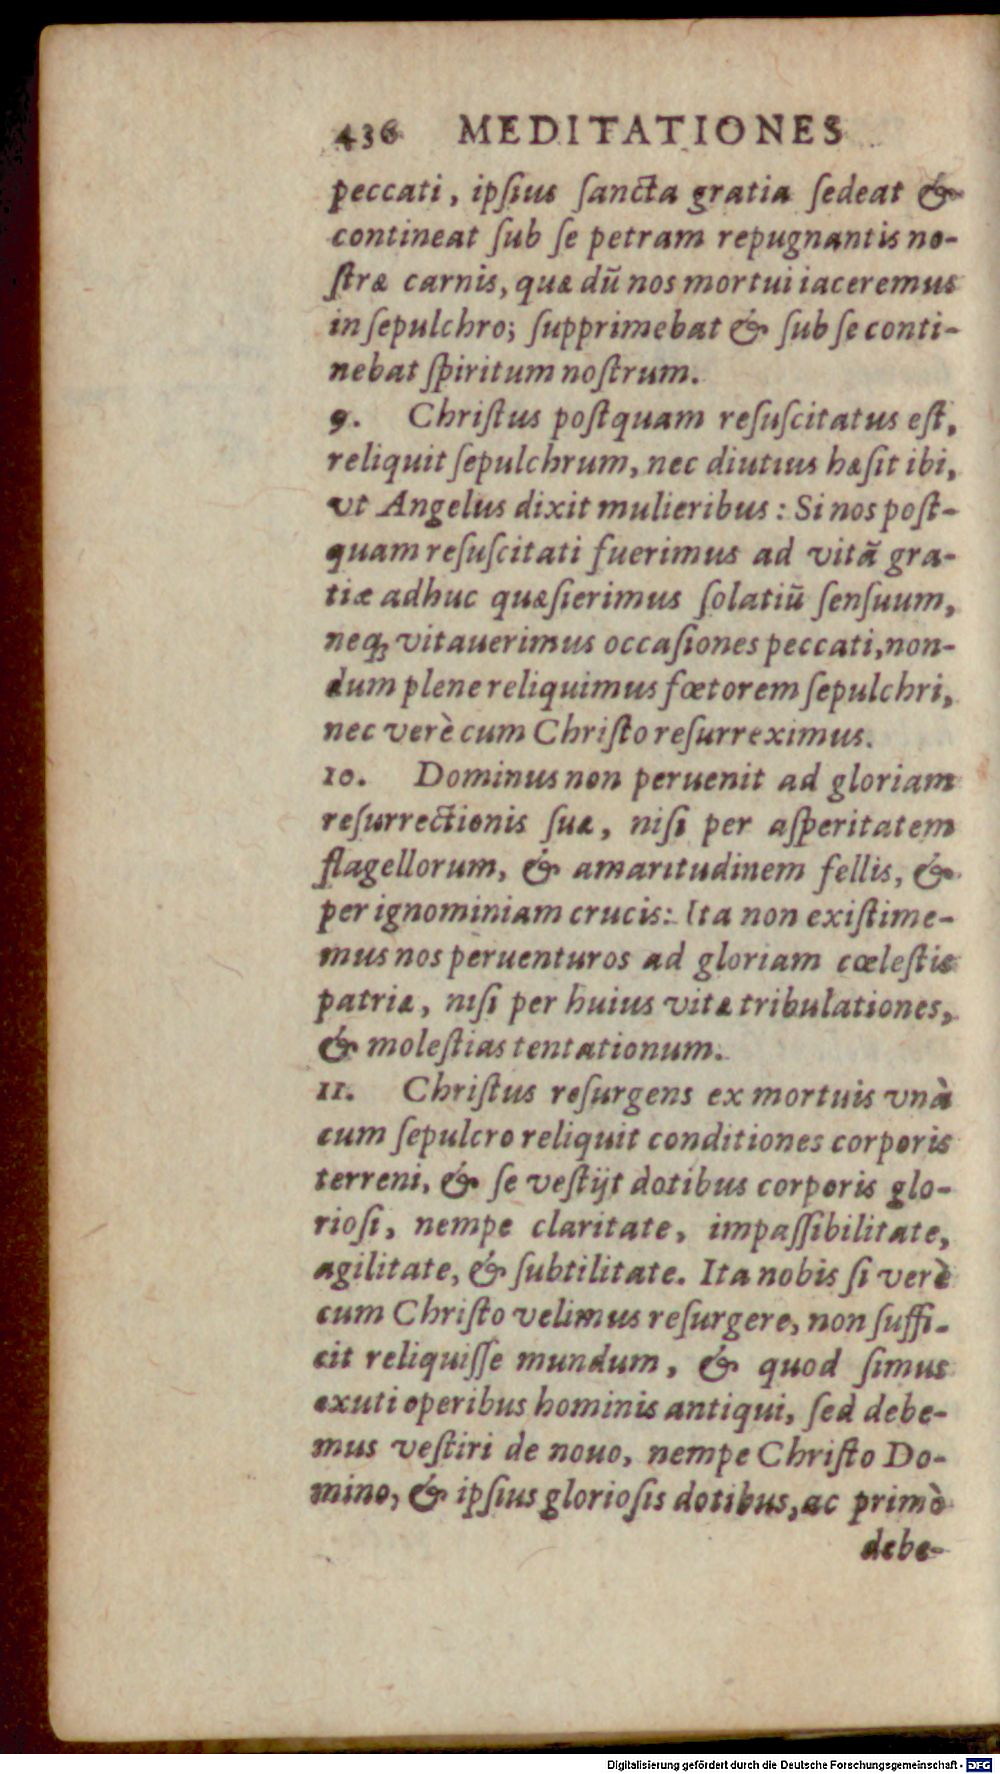 436 MEDITATIONES
peccati, ipſius ſancta gratia ſedeat &
contineat ſub ſe petram repugnantis no-
ſtræ carnis, quæ dū nos mortui iaceremus
in ſepulchro; ſupprimebat & ſub ſe conti-
nebat ſpiritum noſtrum.
9. Chriſtus poſtquam reſuſcitatus eſt,
reliquit ſepulchrum, nec diutius hæſit ibi,
vt Angelus dixit mulieribus: Si nos poſt-
quam reſuſcitati fuerimus ad vitā gra-
tiæ adhuc quæſierimus ſolatiū ſenſuum,
neq; vitauerimus occaſiones peccati, non-
dum plene reliquimus fœtorem ſepulchri,
nec verè cum Chriſto reſurreximus.
10. Dominus non peruenit ad gloriam
reſurrectionis ſuæ, niſi per aſperitatem
flagellorum, & amaritudinem fellis, &
per ignominiam crucis: Ita non exiſtime-
mus nos peruenturos ad gloriam cœleſtis
patriæ, niſi per huius vitæ tribulationes,
& moleſtias tentationum.
11. Chriſtus reſurgens ex mortuis vnà
cum ſepulcro reliquit conditiones corporis
terreni, & ſe veſtijt dotibus corporis glo-
rioſi, nempe claritate, impaſſibilitate,
agilitate, & ſubtilitate. Ita nobis ſi verè
cum Chriſto velimus reſurgere, non ſuffi-
cit reliquiſſe mundum, & quod ſimus
exuti operibus hominis antiqui, ſed debe-
mus veſtiri de nouo, nempe Chriſto Do-
mino, & ipſius glorioſis dotibus, ac primò
debe-
Digitalisierung gefördert durch die Deutsche Forschungsgemeinschaft - DFG